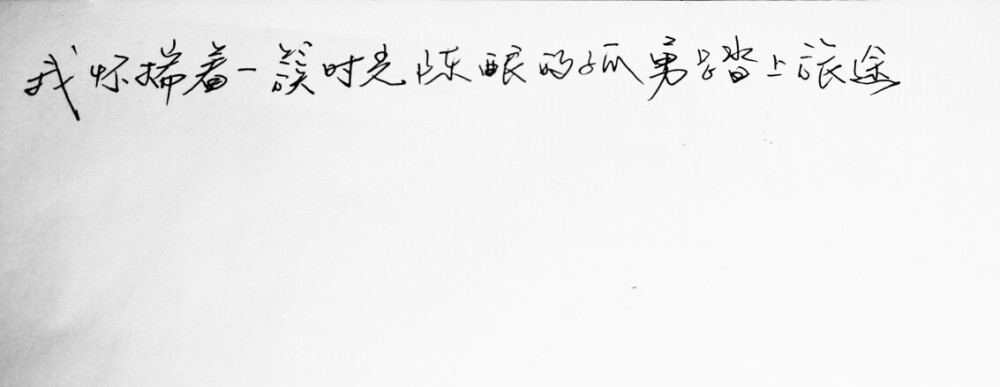 我怀揣着一簇时光陈酿的孤勇踏上旅途